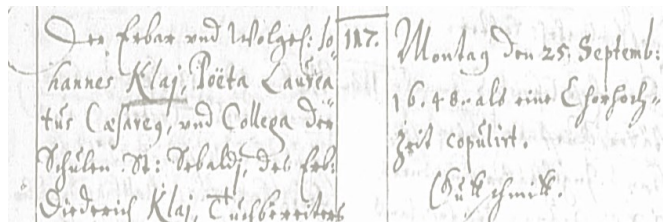 Der Erbar vnd Wolgel: Jo-
hannes Klaj, Poëta Laurea-
tus Cæsareg, vnd Collega der
Schulen St: Sebaldj, des Erb:
Diederich Klaj, Tuchbereiters
117.
Montag den 25. Septemb:
1648. als eine Chorhoch-
zeit copulirt.